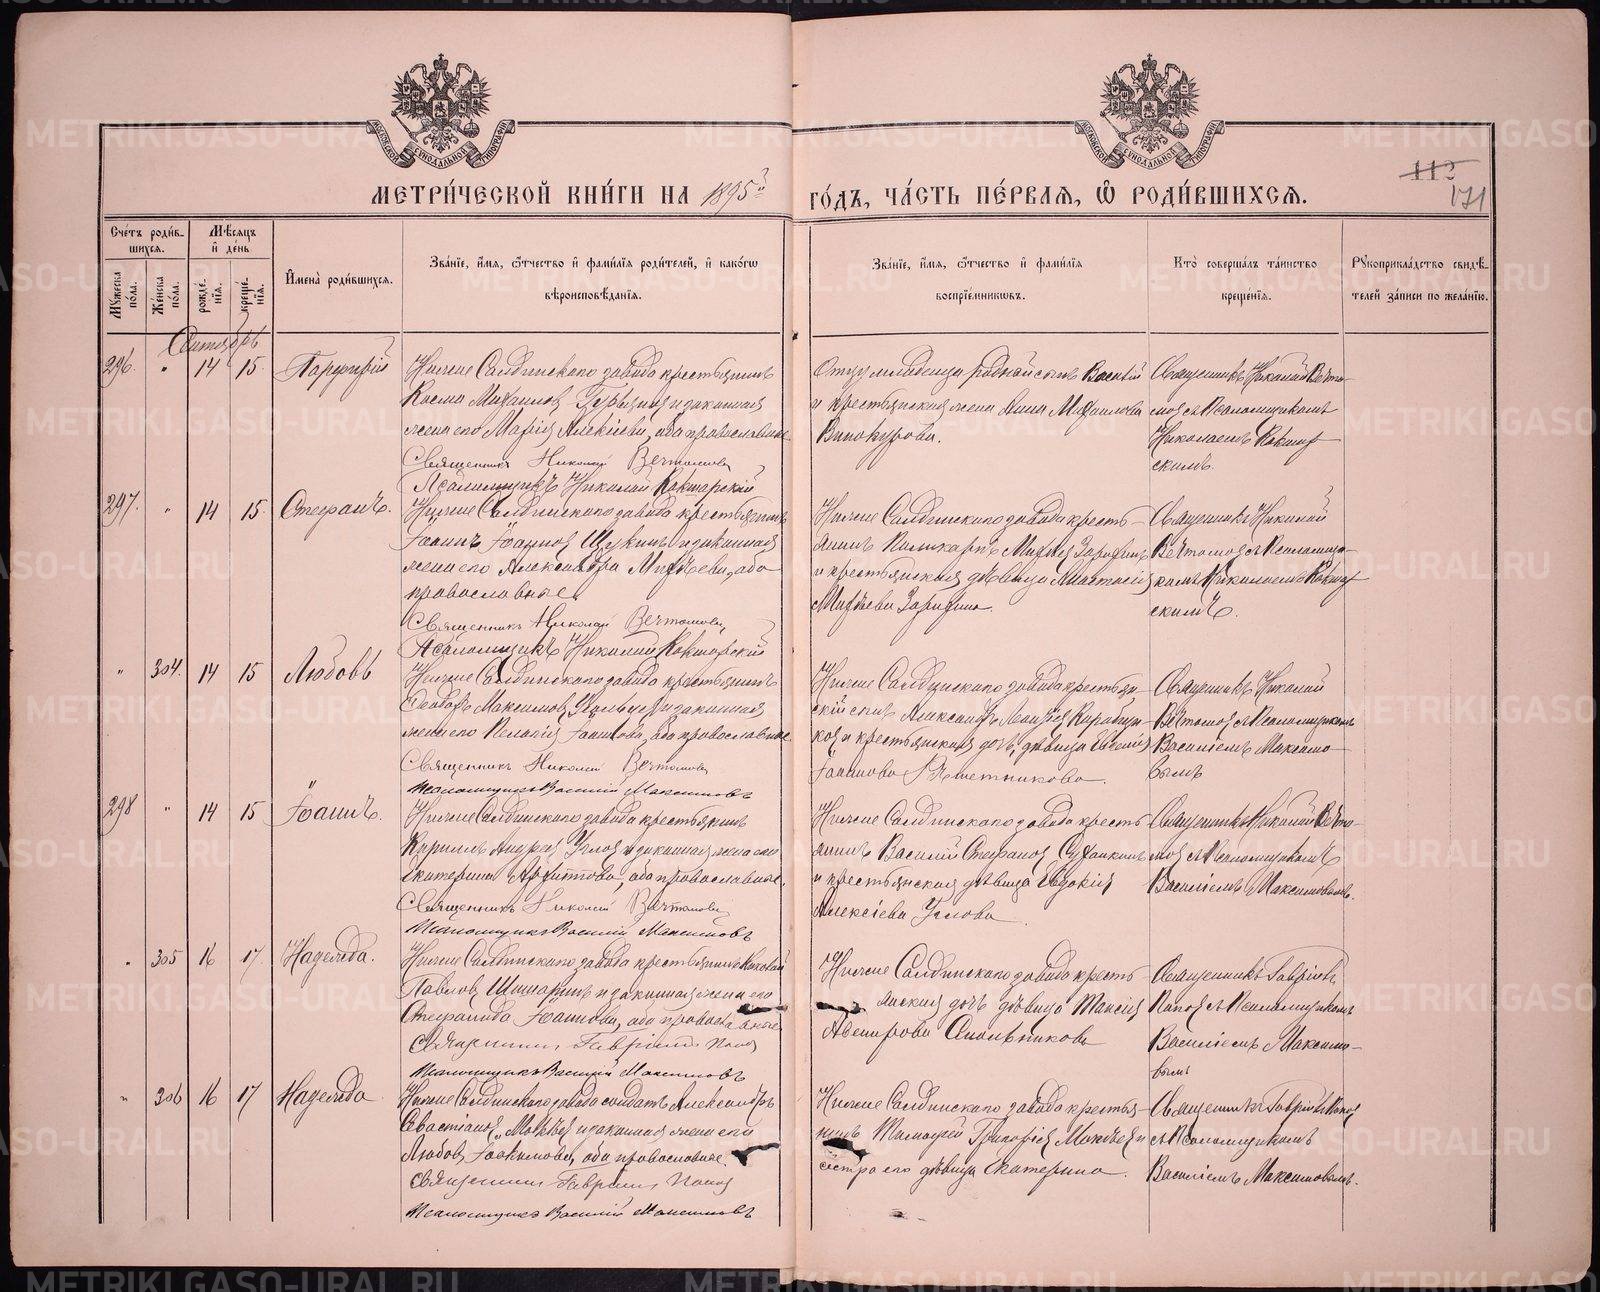 МЕТРИ́ЧЕСКОЙ КНИ́ГИ НА 1895й ГО́ДЪ, ЧА́СТЬ ПЕ́РВАЯ, Ѡ РОДИ́ВШИХСЯ.
112
171
Сче́тъ роди́в-
шихся.
Мѣ́сяцъ
и҆ де́нь
Мꙋ́жеска по́ла.
Же́нска по́ла.
рожде́-
нїѧ.
креще́-
нїѧ.
И҆мена̀ роди́вшихся.
Зва́нїе, и҆́мя, ѻ҆́тчество и҆ фами́лїя роди́телей, и҆ како́гѡ
вѣроисповѣ́данїя.
Зва́нїе, и҆́мя, ѻ҆́тчество и҆ фами́лїя
воспрїе́мниковъ.
Кто̀ соверша́лъ та́инство
креще́нїя.
Рꙋкоприкла́дство свидѣ́-
телей за́писи по жела́нїю.
Сентябрь
296. " 14 15. Парфирій
Нижне Салдинскаго завода крестьянинъ
Косма Михаилов и законная
жена его Марія Алексіева, оба православные
Священникъ Николай Вечтомовъ
Псаломщикъ Николай Кокшарскій
Отцу младенца родной сынъ Василій
и крестьянская жена Анна Михаилова
Винокурова.
Священникъ Николай Вечто-
мов съ Псаломщикомъ
Николаемъ Кокшар
скимъ.
297. " 14 15. Стефанъ.
Нижне Салдинскаго завода крестьянинъ
Іоаннъ Іоаннов Щукинъ и законная
жена его Александра Матѳеева, оба
православные
Священникъ Николай Вечтомовъ
Псаломщикъ Николай Кокшарскій
Нижне Салдинскаго завода кресть-
янинъ Поликарпъ Матѳіев Зорихинъ
и крестьянская дѣвица Анастасія
Матѳіева Зорихина.
Священникъ Николай
Вечтомов съ Псаломщи-
комъ Николаемъ Кокшар
скимъ.
" 304. 14 15 Любовь
Нижне Салдинскаго завода крестьянинъ
Ѳеодоръ Максимов и законная
жена его Пелагія Іоаннова, оба православные
Священникъ Николай Вечтомовъ
Псаломщикъ Василій Максимовъ
Нижне Салдинскаго завода крестьян-
скій сынъ Александръ
и крестьянская дочь, дѣвица Евгенія
Іоаннова Рѣшетникова.
Священникъ Николай
Вечтомов съ Псаломщикомъ
Василіемъ Максимо-
вымъ
298 " 14 15 Іоаннъ.
Нижне Салдинскаго завода крестьянинъ
Кириллъ Андреев Углов и законная жена его
Екатерина, оба православные.
Священникъ Николай Вечтомовъ
Псаломщикъ Василій Максимовъ
Нижне Салдинскаго завода кресть-
янинъ Василій Стефанов
и крестьянская дѣвица Евдокія
Алексіева Углова
Священникъ Николай Вечто-
мов съ Псаломщикомъ
Василіемъ Максимовымъ.
" 305 16 17. Надежда.
Нижне Салдинскаго завода крестьянинъ
Павлов Шишаринъ и законная жена его
Стефанида Іоаннова, оба православные
Священникъ Гавріилъ Попов
Псаломщикъ Василій Максимовъ
Нижне Салдинскаго завода кресть-
янская дочь дѣвица Таисія
Авенирова
Священникъ Гавріилъ
Попов съ Псаломщикомъ
Василіемъ Максимо-
вымъ
" 306 16 17 Надежда
Нижне Салдинскаго завода солдатъ Александръ
Севастіанов и законная жена его
Любовь Іоакимова, оба православные.
Священникъ Гавріилъ Попов
Псаломщикъ Василій Максимовъ
Нижне Салдинскаго завода крестья-
нинъ Тимофей Григоріев и
сестра его дѣвица Екатерина.
Священникъ Гавріилъ Попов
съ Псаломщикомъ
Василіемъ Максимовымъ.
METRIKI.GASO-URAL.RU